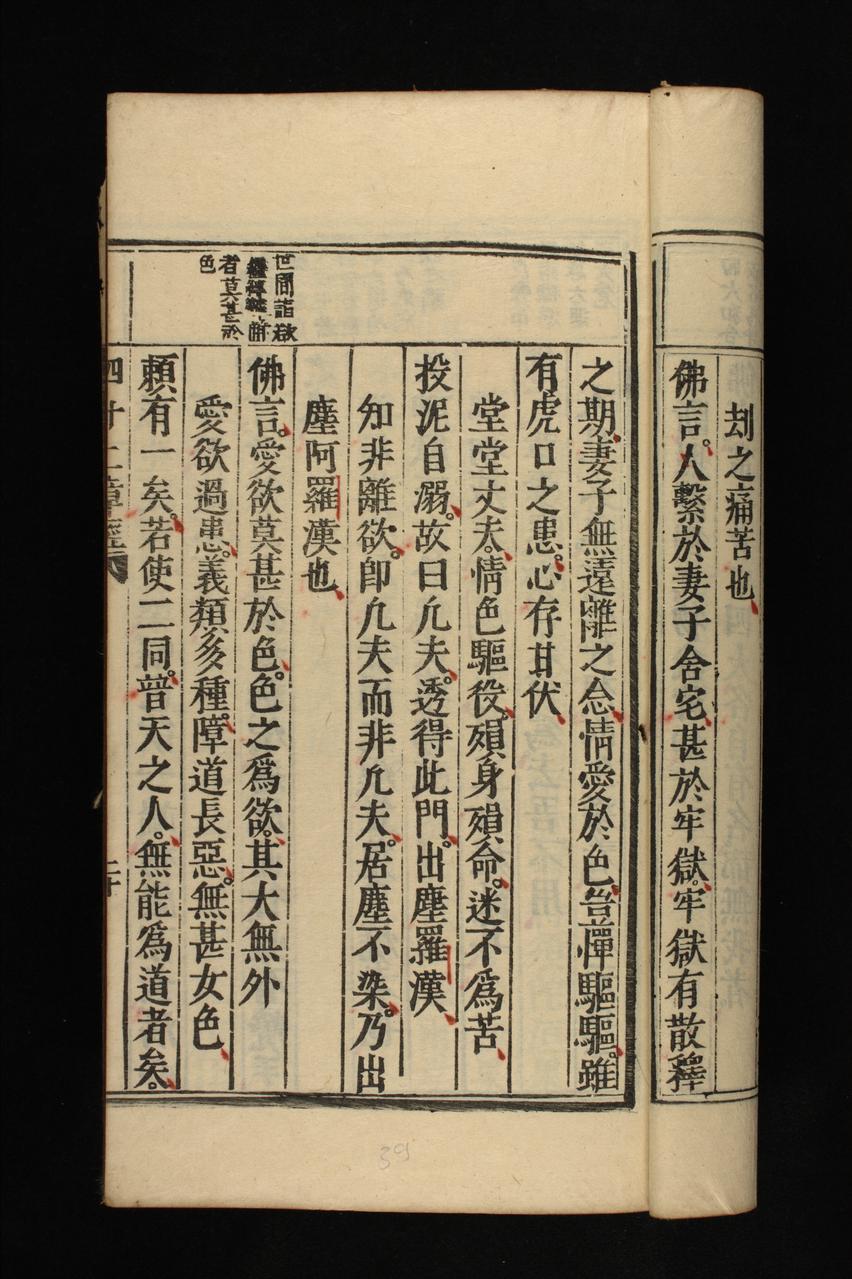 刦之痛苦也
佛言。人繫於妻子舍宅。甚於牢獄。牢獄有散釋
之期。妻子無遠離之念。情愛於色。豈憚驅驅。雖
有虎口之患。心存甘伏
堂堂丈夫。情色驅役。殞身殞命。迷不為苦
投泥自溺。故曰凢夫。透得此門。出塵羅漢
知非離欲。卽凢夫而非凢夫。居塵不染。乃出
塵阿羅漢也
世間諸欲
者莫甚於
色
佛言。愛欲莫甚於色。色之為欲。其大無外
愛欲過患。義類多種。障道長惡。無甚女色
頼有一矣。若使二同。普天之人。無能為道者矣。
四十二章經
二十
39